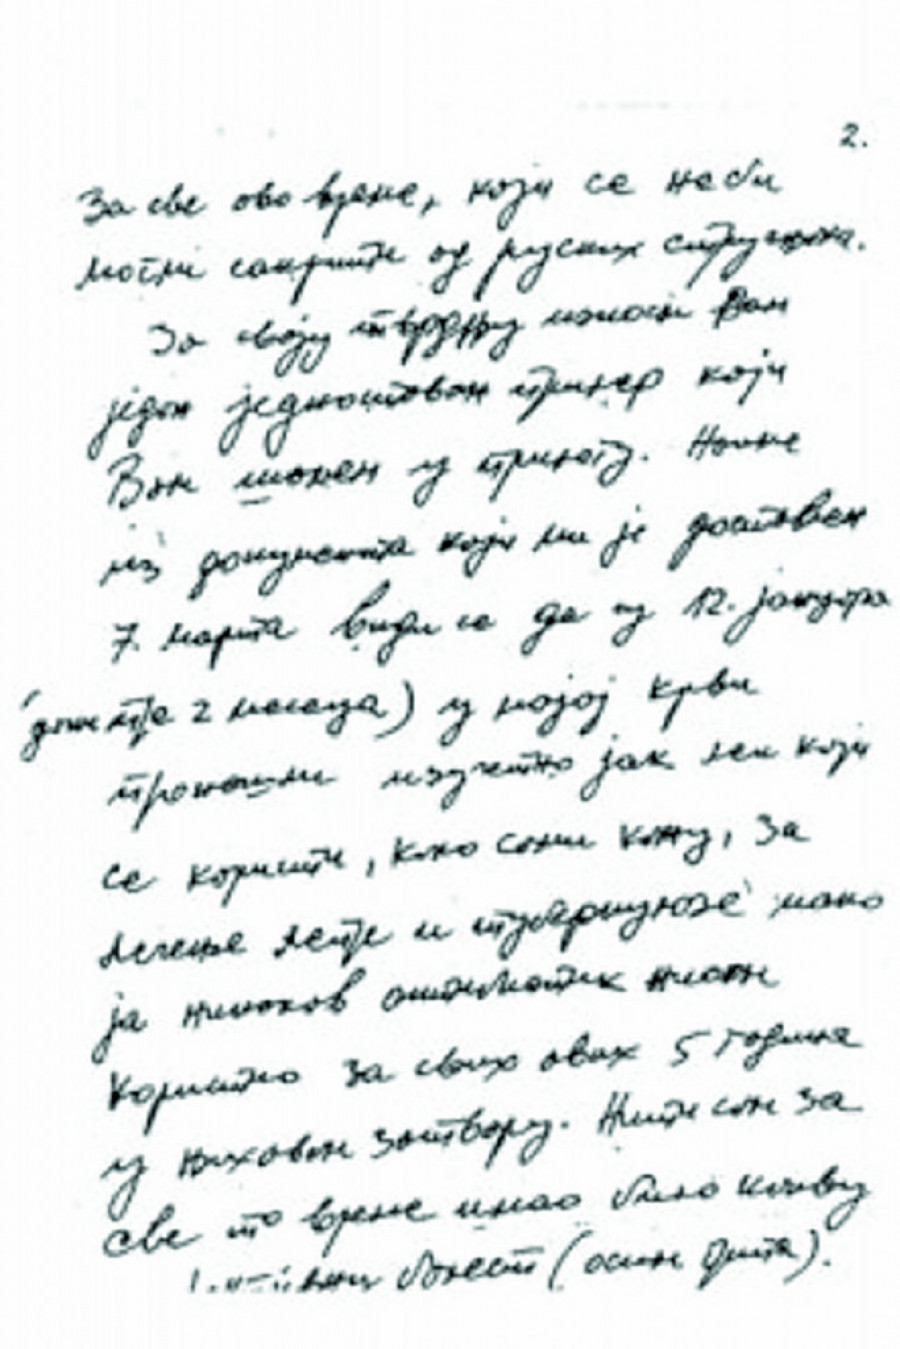 2.
За све ово време, који се не би
могли сакрити од руских стручњака.
За своју тврдњу износим Вам
један једноставан пример који
Вам шаљем у прилогу. Наиме
из документа који ми је достављен
7. марта види се да су 12. јануара
2 месеца) у мојој крви
пронашли изузетно јак лек који
се користи, како сами кажу, за
лечење лепре и туберкулозе иако
ја никакав антибиотик нисам
користио за свих ових 5 година
у њиховом затвору. Нити сам за
све то време имао било какву
болест (осим грипа).